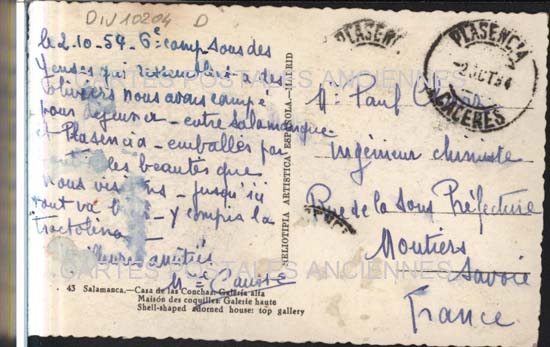 DIV10204 D
le 2.10.54 - 6e camp sous des
Yeuses qui ressemblent à des
Oliviers nous avons campé
pour déjeuner - entre Salamanque
et Plasencia - emballés par
les beautés que
nous - jusqu'ici
tout va - y compris la
amitiés
Mme
43 Salamanca.—Casa de las Conchas: Galería alta
Maison des coquilles: Galerie haute
Shell-shaped adorned house: top gallery
HELIOTIPIA ARTISTICA ESPAÑOLA.-MADRID
PLASENCIA
PLASENCIA
-2 OCT 54
CACERES
Mr Paul
Ingénieur chimiste
Rue de la Sous Préfecture
Moutiers
Savoie
France
CARTES POSTALES ANCIENNES
CARTES POSTALES ANCIENNES